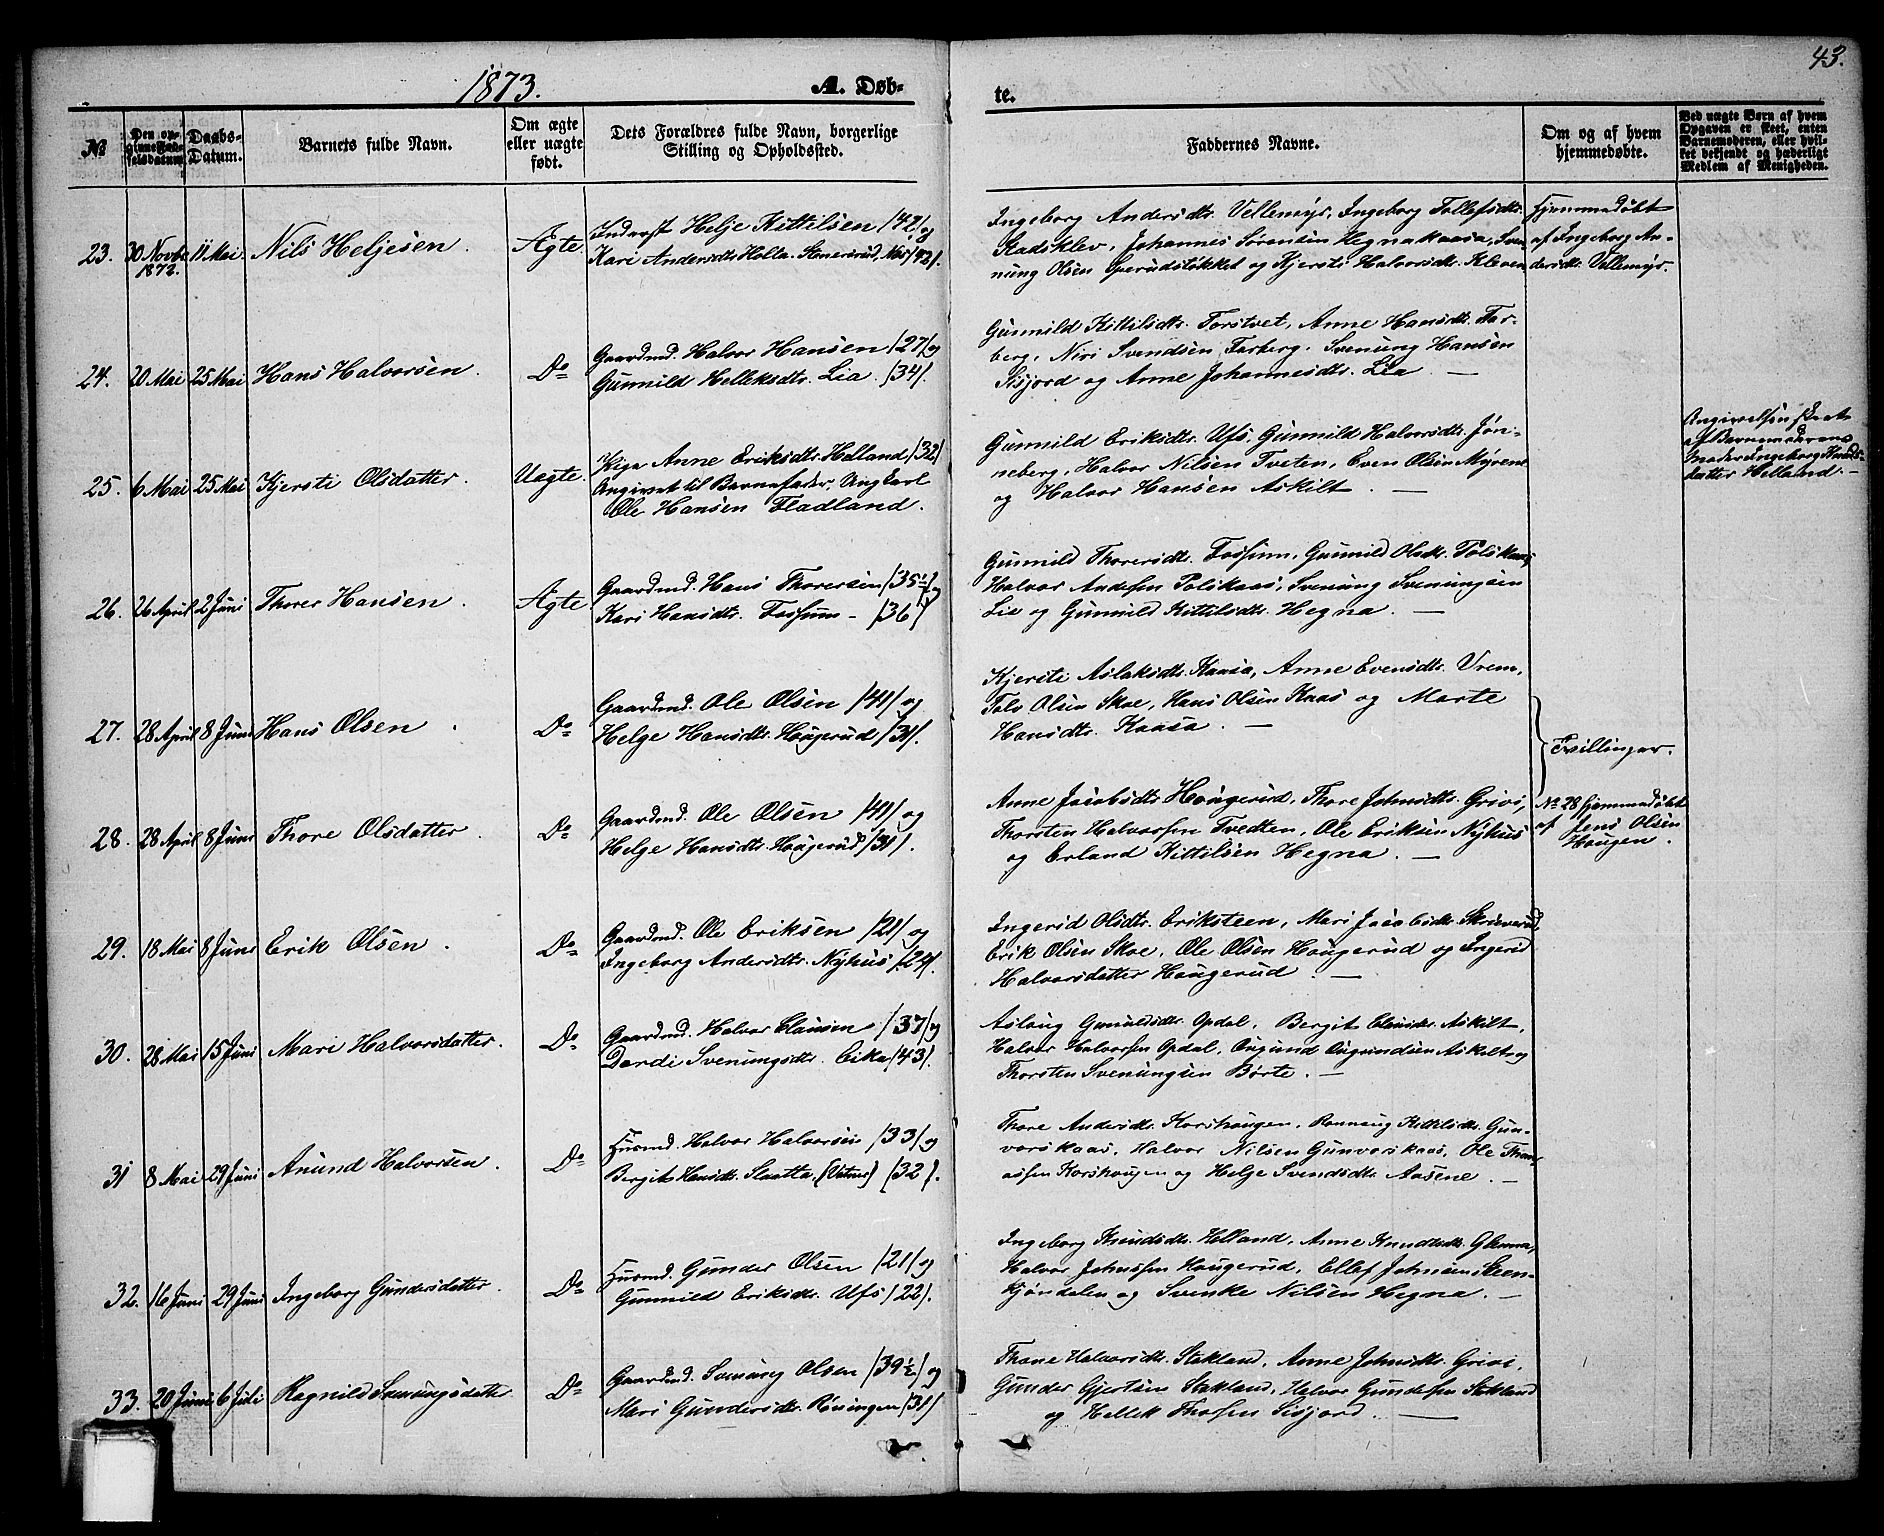 43.
1873.
A. Døb-
te.
№
Den op-
givne Fød-
selsdatum
Daabs-
Datum.
Barnets fulde Navn.
Om ægte
eller uægte
født.
Dets Forældres fulde Navn, borgerlige
Stilling og Opholdssted.
Faddernes Navne.
Om og af hvem
hjemmedøbte.
Ved uægte Børn af hvem
Opgaven er skeet, enten
Barnemoderen, eller hvil-
ket bekjendt og hæderligt
Medlem af Menigheden.
23. 30 Novbr 1872. 11 Mai Nils Heljesen. Ægte
Inderst Helje Kittilsen /42/ og
Kari Andersdtr. Holla
Ingeborg Andersdtr. Vellemyr, Ingeborg Tollefsdtr.
Stadsklev, Johannes Sørensen Hegnakaasa, Sven-
nung Olsen Sperudstøkket og Kjersti Halvorsdtr. Kleven
Hjemmedøbt
af Ingeborg An-
dersdtr. Vellemyr.
24. 20 Mai 25 Mai Hans Halvorsen. Do
Gaardmd. Halvor Hansen /27/ og
Gunnild Helleksdtr. Lia. /34/.
Gunnild Kittilsdtr. Torstvet, Anne Hansdtr. Far-
berg, Niri Svendsen Farberg, Svenung Hansen
Sisjord og Anne Johannesdtr. Lia. —
25. 6 Mai 25 Mai Kjersti Olsdatter. Uægte.
Pige Anne Eriksdtr. Helland /32/
Angivet til Barnefader Ungkarl
Ole Hansen Fladland.
Gunnild Eriksdtr. Ufs, Gunnild Halvorsdtr. Jøn-
neberg, Halvor Nilsen Tveten, Even Olsen Myrene
og Halvor Hansen Askilt —
Angivelsen skeet
af Barnemoderens
Moder Ingeborg Knuds-
datter Helland. —
26. 26 April 2 Juni Thorer Hansen. Ægte
Gaardmd. Hans Thorersen /35½/ og
Kari Hansdtr. Fossum - /36/
Gunnild Thorersdtr. Fossum, Gunnild Olsdtr. Polskaas,
Halvor Andersen Polskaas, Svenung Svenungsen
Lia og Gunnild Kittilsdtr. Hegna. —
27. 28 April 8 Juni Hans Olsen. Do
Gaardmd. Ole Olsen /41/ og
Helge Hansdtr. Høgerud /31/.
Kjersti Aslaksdtr. Kaasa, Anne Evensdtr. Vrem,
Tolv Olsen Skoe, Hans Olsen Kaas og Marte
Hansdtr. Kaasa. —
Tvillinger.
28. 28 April 8 Juni Thore Olsdatter. Do
Gaardmd. Ole Olsen /41/ og
Helge Hansdtr. Høugerud /31/.
Anne Jacobsdtr. Høugerud, Thore Johnsdtr. Grivi,
Thorsten Halvorsen Tvedten, Ole Eriksen Nyhus
og Erland Kittilsen Hegna. —
No 28 hjemmedøbt
af Jens Olsen
Haugen.
29. 18 Mai 8 Juni Erik Olsen. Do
Gaardmd. Ole Eriksen /21/ og
Ingeborg Andersdtr. Nyhus /24/.
Ingerid Olsdtr. Eriksteen, Mari Jacobsdtr. Skriverud,
Erik Olsen Skoe, Ole Olsen Høugerud og Ingerid
Halvorsdatter Høugerud. —
30. 28 Mai 15 Juni Mari Halvorsdatter. Do
Gaardmd. Halvor Clausen /37/ og
Dordi Svenungsdtr. Eika /43/.
Aslaug Gunuldsdtr. Opdal, Bergit Clausdtr. Askilt,
Halvor Halvorsen Opdal, Augund Augundsen Askilt og
Thorsten Svenungsen Børte. —
31 8 Mai 29 Juni Anund Halvorsen. Do
Husmd. Halvor Halvorsen /33/ og
Bergit Hansdtr. Slaatta, /32/.
Thore Andersdtr. Korshaugen, Rønnaug Kittilsdtr. Gun-
vorskaas, Halvor Nilsen Gunvorskaas, Ole Than-
assen Korshaugen og Helge Svendsdtr. Aasene. —
32. 16 Juni 29 Juni Ingeborg Gundersdatter. Do
Husmd. Gunder Olsen /21/ og
Gunnild Eriksdtr. Ufs /22/.
Ingeborg Knudsdtr. Helland, Anne Knudsdtr. Glenna,
Halvor Johnssen Haugerud, Ellef Johnsen Steen-
kjøndalen og Svenke Nilsen Hegna. —
33. 20 Juni 6 Juli Ragnild Sønungsdatter. Do
Gaardmd. Sønung Olsen /39½/ og
Mari Gundersdtr. Røisingen /31/
Thone Halvorsdtr. Stakland, Anne Johnsdtr. Grivi,
Gunder Gjertsen Stakland, Halvor Gundersen Stakland
og Hellek Thorsen Sisjord. —